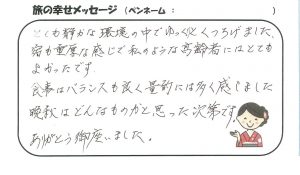 旅の幸せメッセージ (ペンネーム： )
とても静かな環境の中でゆっくりとくつろげました。
宿も重厚な感じで私のような高齢者にはとても
よかったです
食事はバランスも良く量的には多く感じました
晩秋はどんなものかと思った次第です。
ありがとう御座いました。